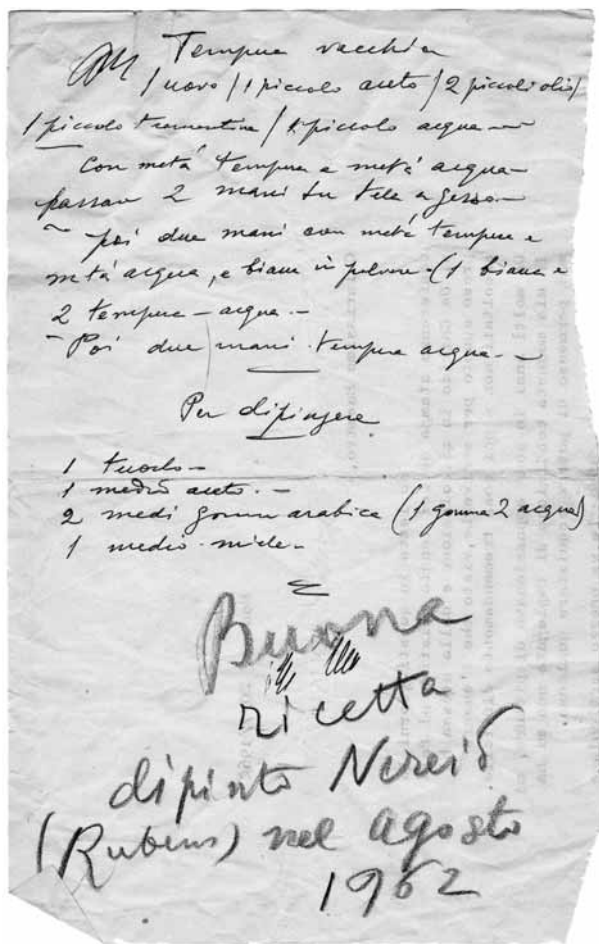 Tempera vecchia
1 uovo / 1 piccolo aceto / 2 piccoli olio /
1 piccolo trementina / 1 piccolo acqua —
Con metá tempera e metá acqua —
passare 2 mani su tela a gesso. —
poi due mani con metá tempera e
metá acqua, e bianco in polvere - (1 bianco e
2 tempera — acqua. —
Poi due mani tempera acqua. —
Per dipingere
1 tuorlo —
1 medio aceto. —
2 medi gomma arabica (1 gomma 2 acqua)
1 medio miele -
Buona
ricetta
dipinto
(Rubens) nel agosto
1962